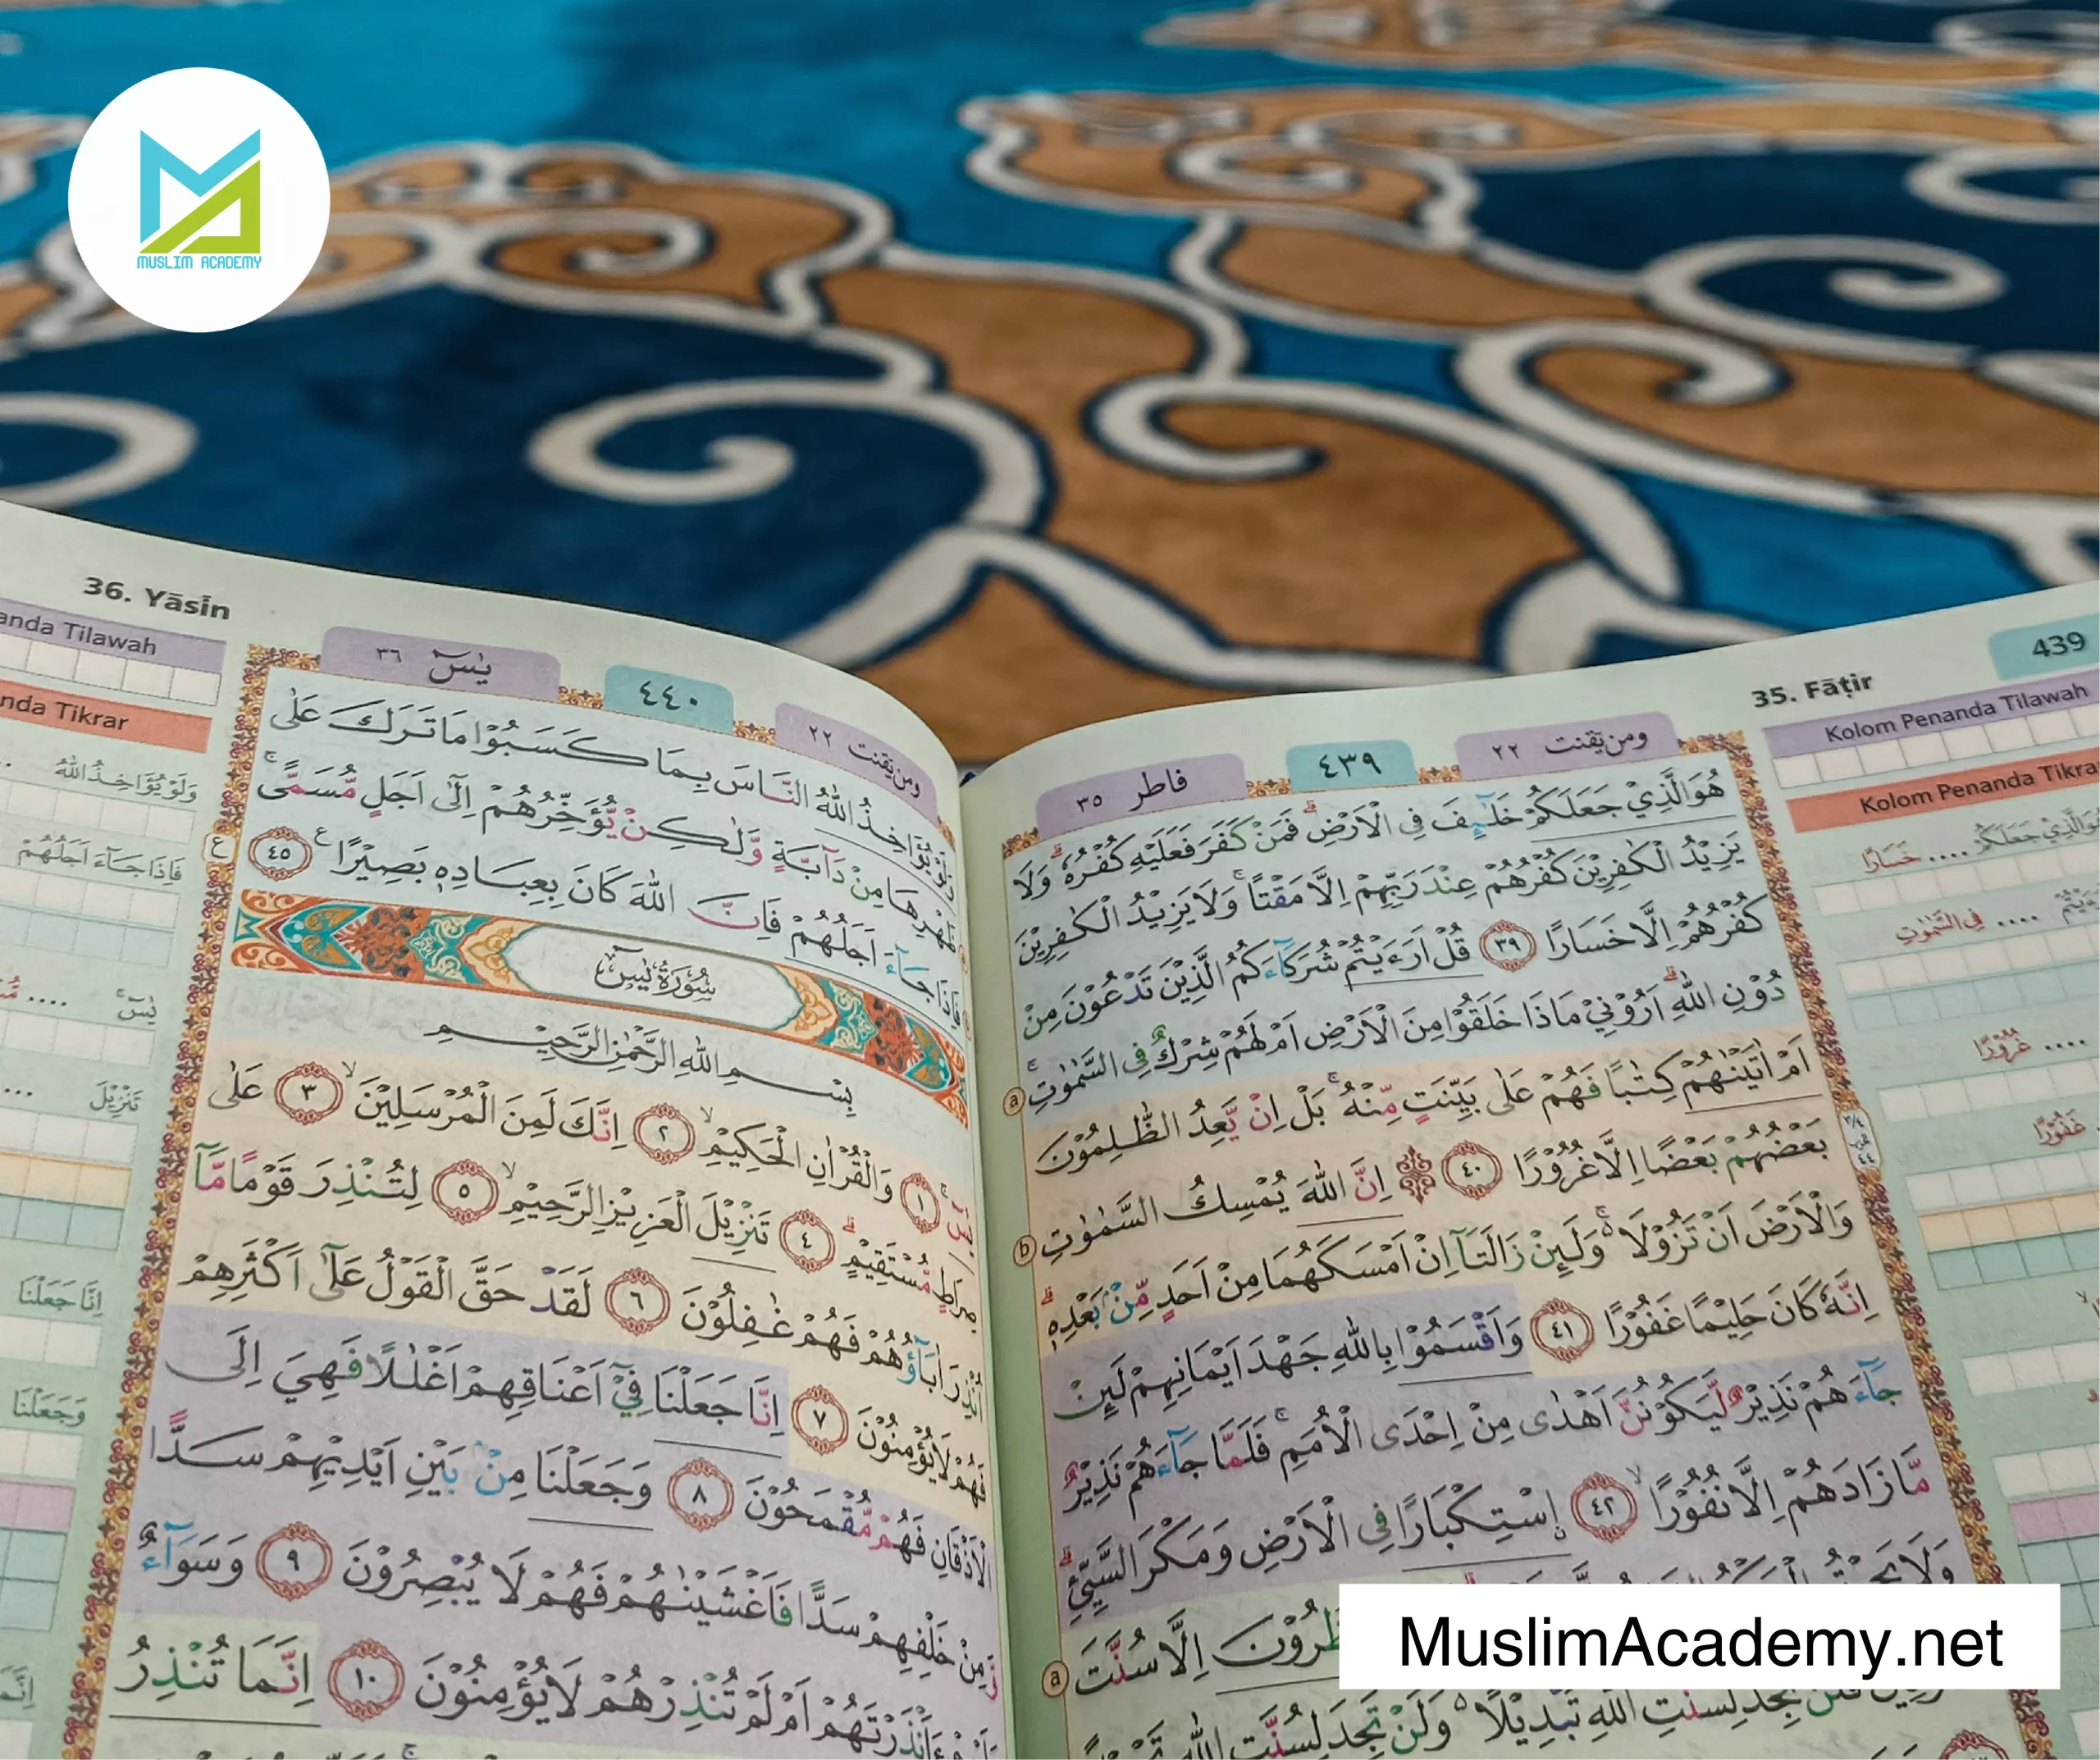 MUSLIM ACADEMY
439
35. Fāṭir
Kolom Penanda Tilawah
Kolom Penanda Tikrar
ومن يقنت ٢٢
٤٣٩
فاطر ٣٥
هُوَ الَّذِيْ جَعَلَكُمْ خَلٰۤىِٕفَ فِى الْاَرْضِۗ فَمَنْ كَفَرَ فَعَلَيْهِ كُفْرُهٗۗ وَلَا
يَزِيْدُ الْكٰفِرِيْنَ كُفْرُهُمْ عِنْدَ رَبِّهِمْ اِلَّا مَقْتًاۚ وَلَا يَزِيْدُ الْكٰفِرِيْنَ
كُفْرُهُمْ اِلَّا خَسَارًا ٣٩ قُلْ اَرَءَيْتُمْ شُرَكَاۤءَكُمُ الَّذِيْنَ تَدْعُوْنَ مِنْ
دُوْنِ اللّٰهِۗ اَرُوْنِيْ مَاذَا خَلَقُوْا مِنَ الْاَرْضِ اَمْ لَهُمْ شِرْكٌ فِى السَّمٰوٰتِۚ
اَمْ اٰتَيْنٰهُمْ كِتٰبًا فَهُمْ عَلٰى بَيِّنَتٍ مِّنْهُۚ بَلْ اِنْ يَّعِدُ الظّٰلِمُوْنَ
بَعْضُهُمْ بَعْضًا اِلَّا غُرُوْرًا ٤٠ ۞ اِنَّ اللّٰهَ يُمْسِكُ السَّمٰوٰتِ
وَالْاَرْضَ اَنْ تَزُوْلَا ەۚ وَلَىِٕنْ زَالَتَآ اِنْ اَمْسَكَهُمَا مِنْ اَحَدٍ مِّنْۢ بَعْدِهٖۗ
اِنَّهٗ كَانَ حَلِيْمًا غَفُوْرًا ٤١ وَاَقْسَمُوْا بِاللّٰهِ جَهْدَ اَيْمَانِهِمْ لَىِٕنْ
جَاۤءَهُمْ نَذِيْرٌ لَّيَكُوْنُنَّ اَهْدٰى مِنْ اِحْدَى الْاُمَمِۚ فَلَمَّا جَاۤءَهُمْ نَذِيْرٌ
مَّا زَادَهُمْ اِلَّا نُفُوْرًاۙ ٤٢ ۨاسْتِكْبَارًا فِى الْاَرْضِ وَمَكْرَ السَّيِّئِۗ
اِلَّا سُنَّتَ
تَجِدَ لِسُنَّتِ اللّٰهِ تَبْدِيْلًا ەۚ وَلَنْ تَجِدَ لِسُنَّتِ اللّٰهِ
36. Yāsīn
anda Tilawah
nda Tikrar
ومن يقنت ٢٢
٤٤٠
يٰسۤ ٣٦
وَلَوْ يُؤَاخِذُ اللّٰهُ النَّاسَ بِمَا كَسَبُوْا مَا تَرَكَ عَلٰى
ظَهْرِهَا مِنْ دَاۤبَّةٍ وَّلٰكِنْ يُّؤَخِّرُهُمْ اِلٰٓى اَجَلٍ مُّسَمًّىۚ
فَاِذَا جَاۤءَ اَجَلُهُمْ فَاِنَّ اللّٰهَ كَانَ بِعِبَادِهٖ بَصِيْرًا ٤٥
سُوْرَةُ يٰسۤ
بِسْمِ اللّٰهِ الرَّحْمٰنِ الرَّحِيْمِ
يٰسۤۚ ١ وَالْقُرْاٰنِ الْحَكِيْمِۙ ٢ اِنَّكَ لَمِنَ الْمُرْسَلِيْنَۙ ٣ عَلٰى
صِرَاطٍ مُّسْتَقِيْمٍۗ ٤ تَنْزِيْلَ الْعَزِيْزِ الرَّحِيْمِۙ ٥ لِتُنْذِرَ قَوْمًا مَّآ
اُنْذِرَ اٰبَاۤؤُهُمْ فَهُمْ غٰفِلُوْنَ ٦ لَقَدْ حَقَّ الْقَوْلُ عَلٰٓى اَكْثَرِهِمْ
فَهُمْ لَا يُؤْمِنُوْنَ ٧ اِنَّا جَعَلْنَا فِيْٓ اَعْنَاقِهِمْ اَغْلٰلًا فَهِيَ اِلَى
الْاَذْقَانِ فَهُمْ مُّقْمَحُوْنَ ٨ وَجَعَلْنَا مِنْۢ بَيْنِ اَيْدِيْهِمْ سَدًّا
وَّمِنْ خَلْفِهِمْ سَدًّا فَاَغْشَيْنٰهُمْ فَهُمْ لَا يُبْصِرُوْنَ ٩ وَسَوَاۤءٌ
عَلَيْهِمْ ءَاَنْذَرْتَهُمْ اَمْ لَمْ تُنْذِرْهُمْ لَا يُؤْمِنُوْنَ ١٠ اِنَّمَا تُنْذِرُ
MuslimAcademy.net